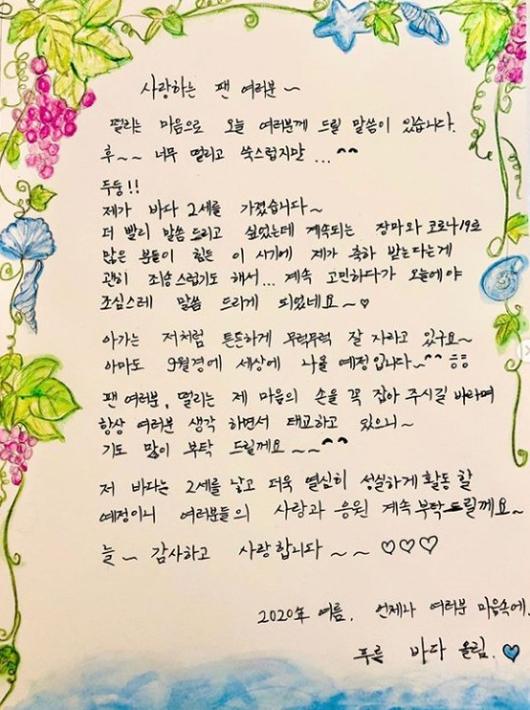 사랑하는 팬 여러분~
떨리는 마음으로 오늘 여러분께 드릴 말씀이 있습니다.
후~~ 너무 떨리고 쑥스럽지만...^^
두둥!!
제가 바다 2세를 가졌습니다~
더 빨리 말씀 드리고 싶었는데 계속되는 장마와 코로나19로
많은 분들이 힘든 이 시기에 제가 축하 받는다는게
괜히 죄송스럽기도 해서... 계속 고민하다가 오늘에야
조심스레 말씀 드리게 되었네요~♡
아가는 저처럼 튼튼하게 무럭무럭 잘 자라고 있구요~
아마도 9월경에 세상에 나올 예정입니다~^^ ㅎㅎ
팬 여러분, 떨리는 제 마음의 손을 꼭 잡아 주시길 바라며
항상 여러분 생각 하면서 태교하고 있으니~
기도 많이 부탁 드릴께요~~^^
저 바다는 2세를 낳고 더욱 열심히 성실하게 활동 할
예정이니 여러분들의 사랑과 응원 계속 부탁드릴께요~
늘~ 감사하고 사랑합니다~~ ♡♡♡
2020年 여름. 언제나 여러분 마음속에.
푸른 바다 올림.♡